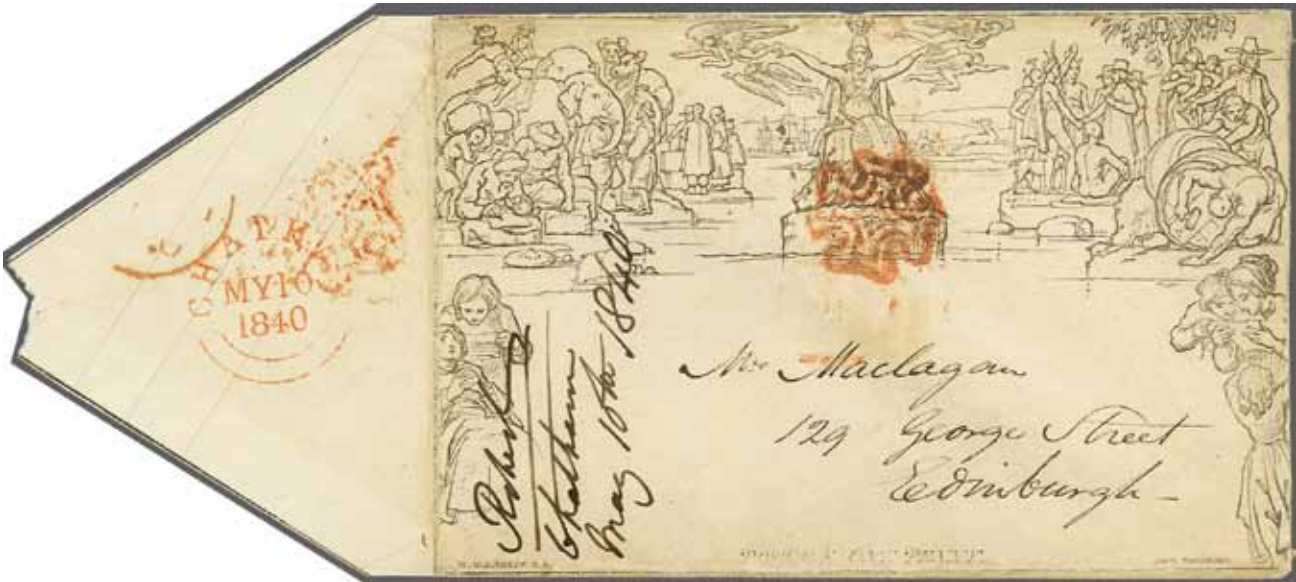 CHATH
MY10
1840
Robert
Chatham
May 10th 1840
Mrs Maclagan
129 George Street
Edinburgh